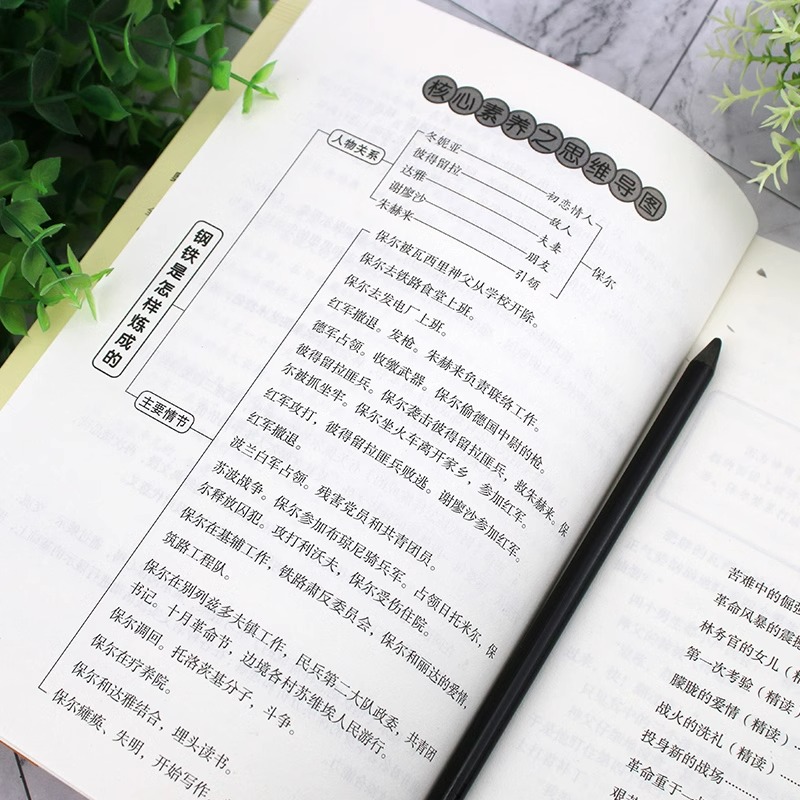 核心素养之思维导图
钢铁是怎样炼成的
人物关系
冬妮亚
彼得留拉
达雅
谢廖沙
朱赫来
初恋情人
敌人
夫妻
朋友
引领
保尔
主要情节
保尔被瓦西里神父从学校开除。
保尔去铁路食堂上班。
保尔去发电厂上班。
红军撤退。发枪。朱赫来负责联络工作。
德军占领。收缴武器。保尔偷德国中尉的枪。
彼得留拉匪兵。保尔袭击彼得留拉匪兵,救朱赫来。保
尔被抓坐牢。保尔坐火车离开家乡,参加红军。
红军攻打,彼得留拉匪兵败逃。谢廖沙参加红军。
红军撤退。
波兰白军占领。残害党员和共青团员。
苏波战争。保尔参加布琼尼骑兵军。占领日托米尔,保
尔释放囚犯。攻打利沃夫,保尔受伤住院。
保尔在基辅工作,铁路肃反委员会,保尔和丽达的爱情,
筑路工程队。
保尔在别列兹多夫镇工作,民兵第二大队政委,共青团
书记。十月革命节,边境各村苏维埃人民游行。
保尔调回。托洛茨基分子,斗争。
保尔在疗养院。
保尔和达雅结合,埋头读书。
保尔瘫痪、失明,开始写作
苦难中的倔强
革命风暴的震撼
林务官的女儿(精
第一次考验(精读)
朦胧的爱情(精读)
战火的洗礼(精读)
投身新的战场
革命重于一